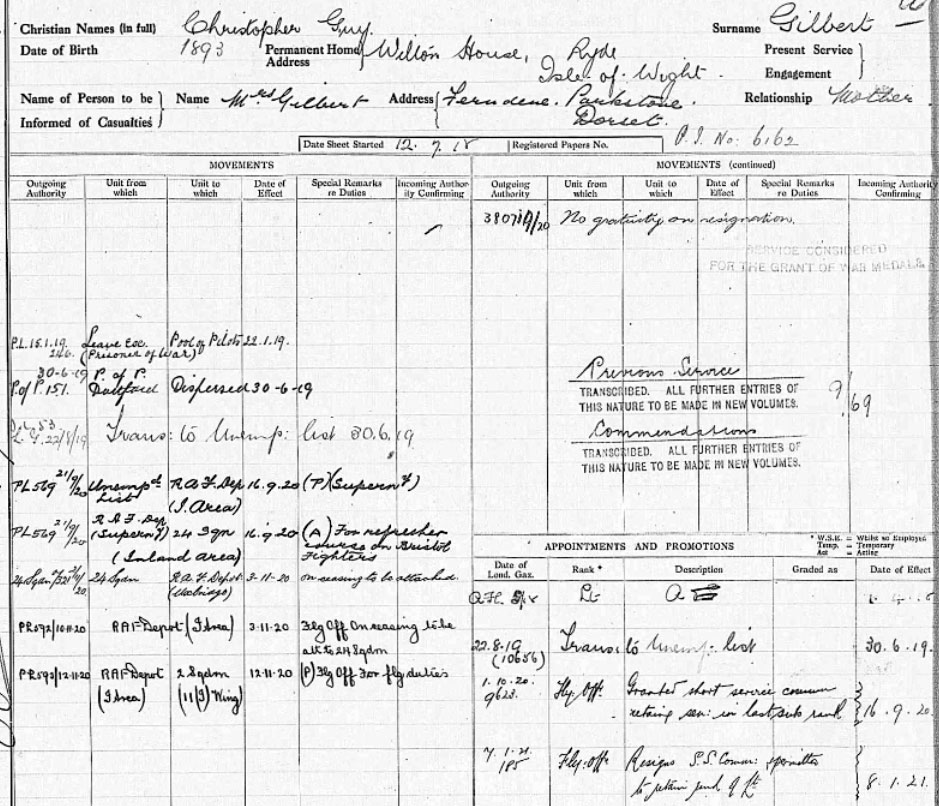 Christian Names (in full) Christopher Guy. Surname Gilbert
Date of Birth 1893 Permanent Home Address Wilton House, Ryde Isle of Wight. Present Service Engagement
Name of Person to be Informed of Casualties Name Mrs Gilbert Address Ferndene. Parkstone. Dorset. Relationship Mother
Date Sheet Started 12.7.18 Registered Papers No. P.I. No: 6162
MOVEMENTS
Outgoing Authority Unit from which Unit to which Date of Effect Special Remarks re Duties Incoming Authority Confirming
P.L. 15.1.19. 246. Leave Exc. (Prisoner of War) Pool of Pilots 22.1.19.
30-6-19 P. of P. 151. P. of P. Dartford Dispersed 30-6-19
L.G. 22/8/19 Trans: to Unemp: list 30.6.19
PL569 21/9/20 Unempd List RAF Dep (I. Area) 16.9.20 (P) (Superny)
PL569 21/9/20 RAF Dep (Superny) (Inland area) 24 Sqn 16.9.20 (A) For refresher course on Bristol Fighters
24 Sqdn 24 Sqdn R.A.F. Depot (Uxbridge) 3-11-20 on ceasing to be attached.
PR592/10.11.20 RAF Depot (I Area) 3.11.20 Flg Off On ceasing to be att to 24 Sqdn
PR593/12.11.20 RAF Depot (I Area) 2 Sqdm (11/I) Wing 12.11.20 (P) Flg Off For flg duties
MOVEMENTS (continued)
Outgoing Authority Unit from which Unit to which Date of Effect Special Remarks re Duties Incoming Authority Confirming
No gratuity on resignation.
SERVICE CONSIDERED
FOR THE GRANT OF WAR MEDALS
Previous Service
TRANSCRIBED. ALL FURTHER ENTRIES OF
THIS NATURE TO BE MADE IN NEW VOLUMES.
9/69
Commendations
TRANSCRIBED. ALL FURTHER ENTRIES OF
THIS NATURE TO BE MADE IN NEW VOLUMES.
* W.S.E. = Whilst so Employed
Temp. = Temporary
Act = Acting
APPOINTMENTS AND PROMOTIONS
Date of Lond. Gaz. Rank * Description Graded as Date of Effect
Lt A
22.8.19 (10656) Trans: to Unemp: list 30.6.19.
1.10.20. 9623. Fly. Offr. Granted short service commn retaing sen: in last sub rank 16.9.20
7.1.21. 185 Fly: offr Resigns S.S. Comm: permitted to retain rank of Lt 8.1.21.